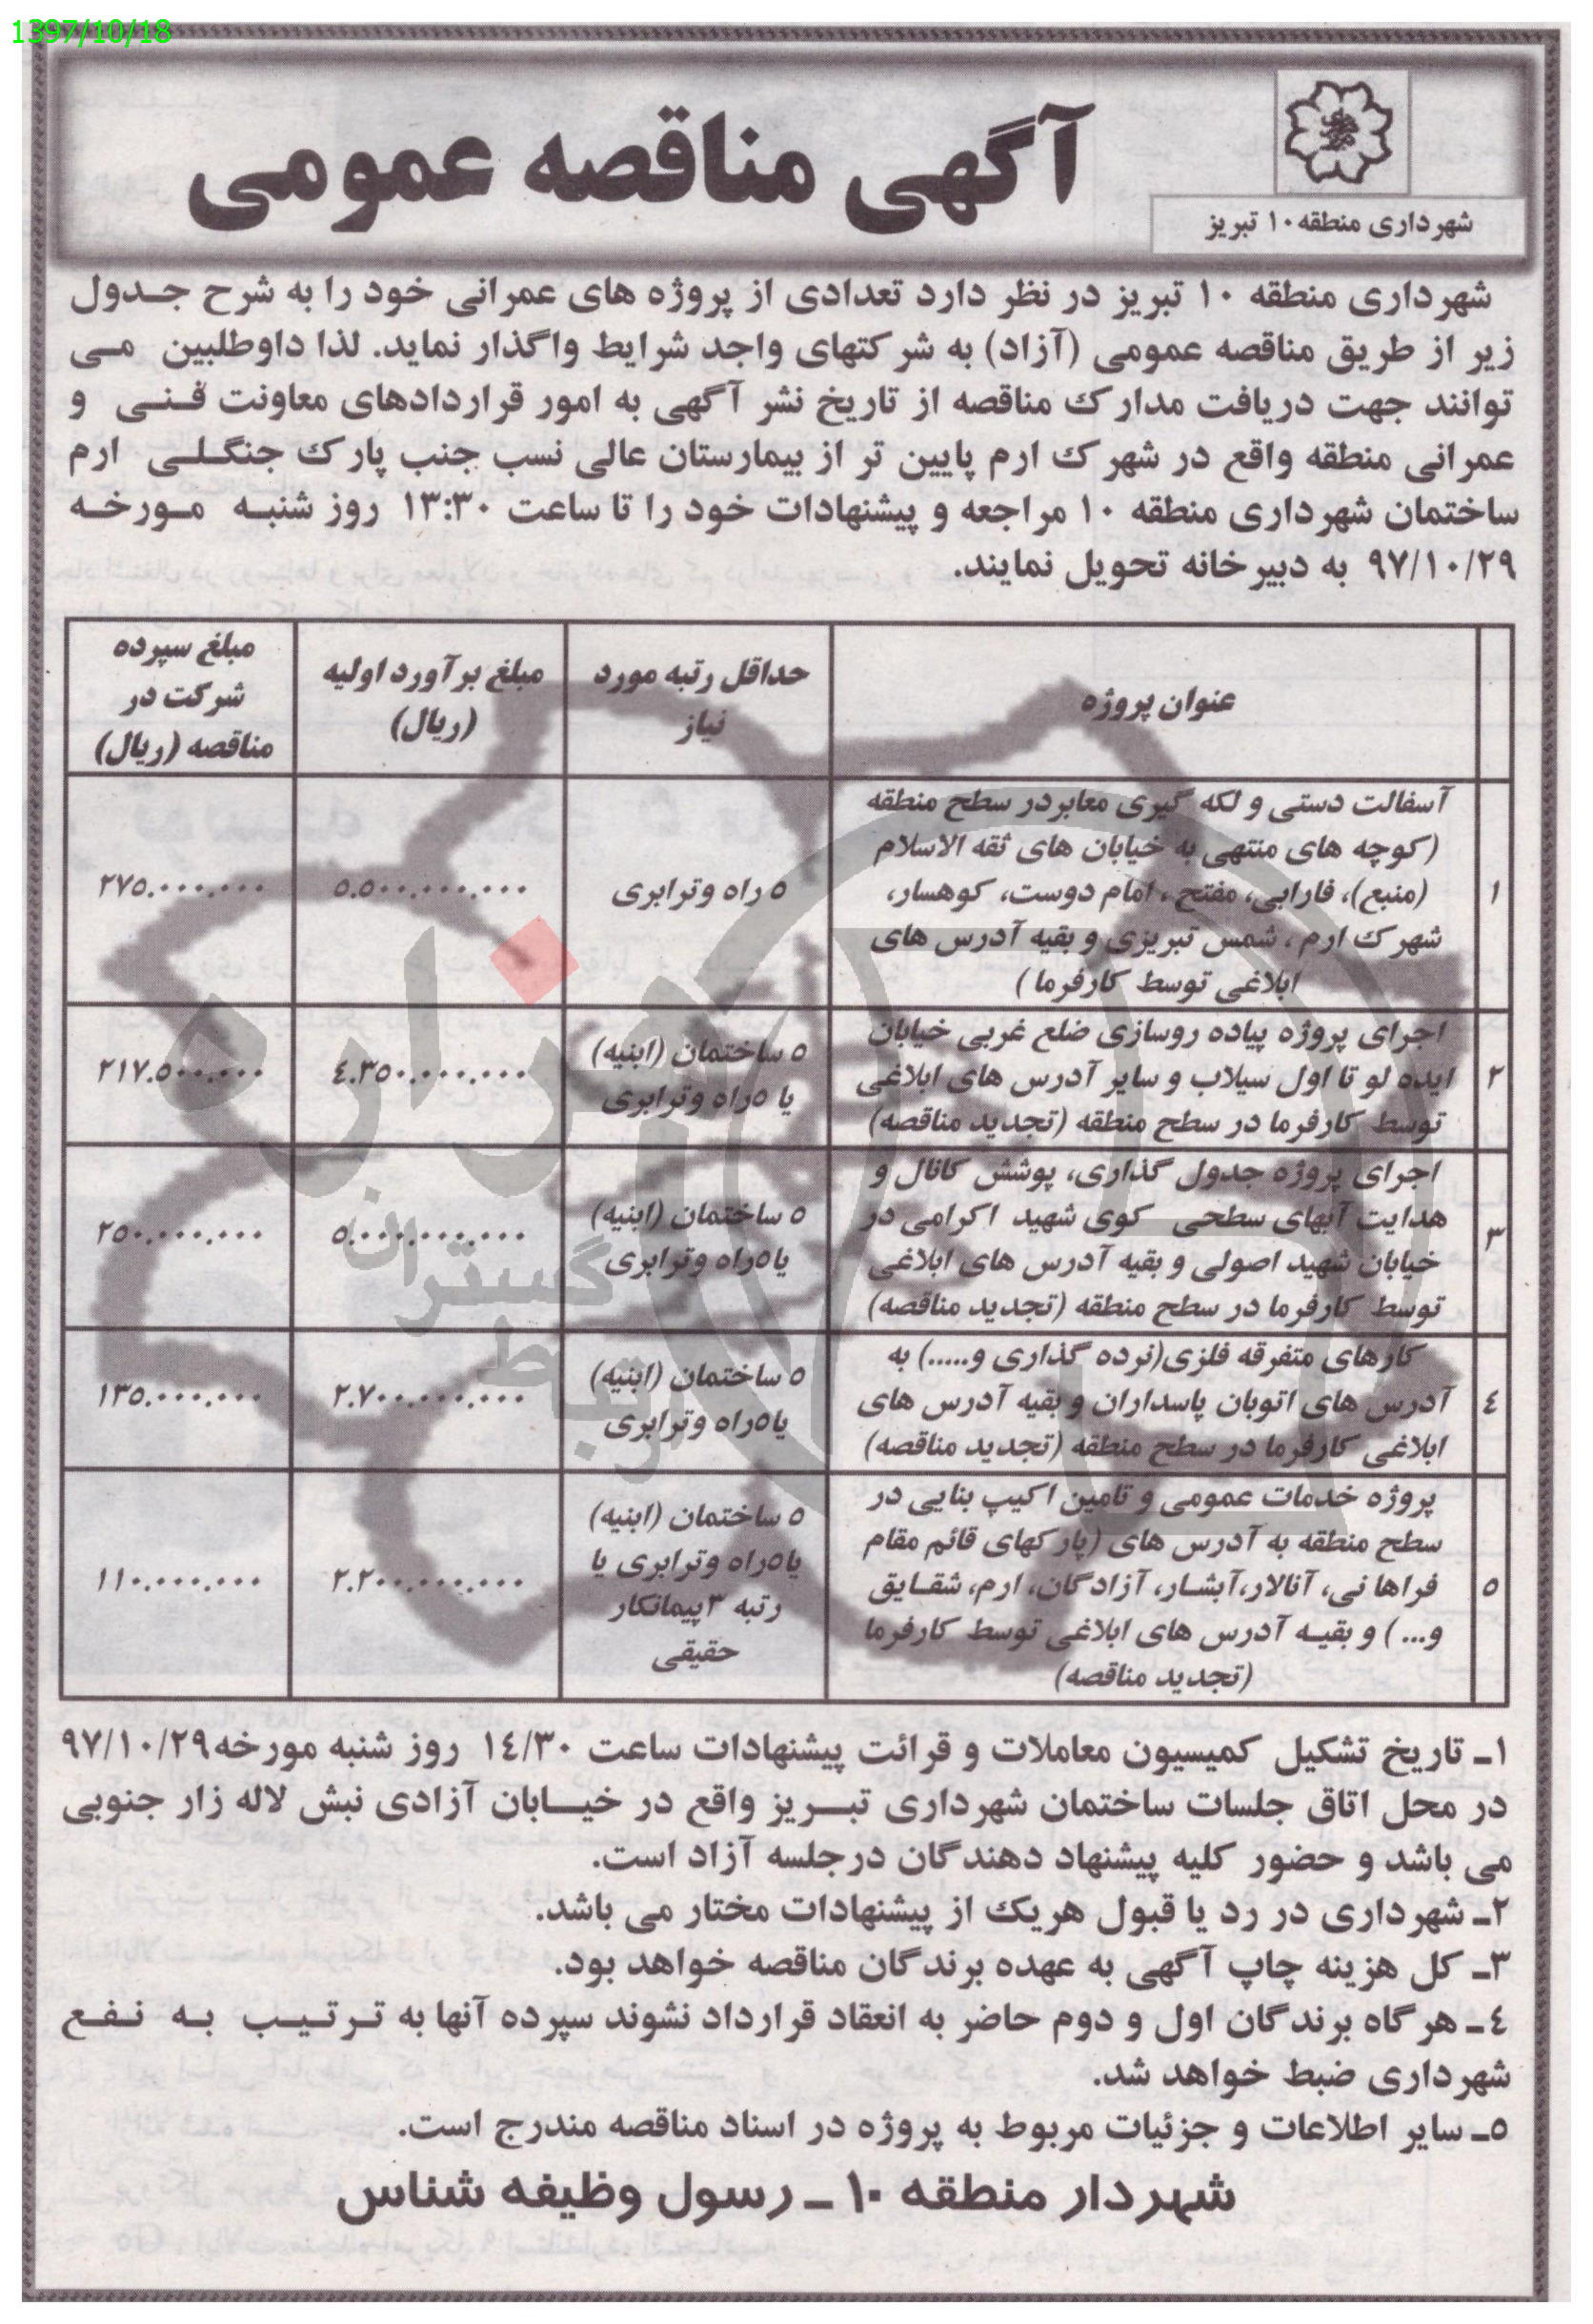 1397/10/18
آگهی مناقصه عمومی
شهرداری منطقه ۱۰ تبریز
شهرداری منطقه ۱۰ تبریز در نظر دارد تعدادی از پروژه های عمرانی خود را به شرح جدول
زیر از طریق مناقصه عمومی (آزاد) به شرکتهای واجد شرایط واگذار نماید. لذا داوطلبین می
توانند جهت دریافت مدارک مناقصه از تاریخ نشر آگهی به امور قراردادهای معاونت فنی و
عمرانی منطقه واقع در شهرک ارم پایین تر از بیمارستان عالی نسب جنب پارک جنگلی ارم
ساختمان شهرداری منطقه ۱۰ مراجعه و پیشنهادات خود را تا ساعت ۱۳:۳۰ روز شنبه مورخه
۹۷/۱۰/۲۹ به دبیرخانه تحویل نمایند.
عنوان پروژه
حداقل رتبه مورد
نیاز
مبلغ برآورد اولیه
(ریال)
مبلغ سپرده
شرکت در
مناقصه (ریال)
۱
آسفالت دستی و لکه گیری معابردر سطح منطقه
(کوچه های منتهی به خیابان های ثقه الاسلام
(منبع)، فارابی، مفتح ، امام دوست، کوهسار،
شهرک ارم ، شمس تبریزی و بقیه آدرس های
ابلاغی توسط کارفرما )
۵ راه وترابری
۵.۵۰۰.۰۰۰.۰۰۰
۲۷۵.۰۰۰.۰۰۰
۲
اجرای پروژه پیاده روسازی ضلع غربی خیابان
ایده لو تا اول سیلاب و سایر آدرس های ابلاغی
توسط کارفرما در سطح منطقه (تجدید مناقصه)
۵ ساختمان (ابنیه)
یا ۵راه وترابری
۴.۳۵۰.۰۰۰.۰۰۰
۲۱۷.۵۰۰.۰۰۰
۳
اجرای پروژه جدول گذاری، پوشش کانال و
هدایت آبهای سطحی کوی شهید اکرامی در
خیابان شهید اصولی و بقیه آدرس های ابلاغی
توسط کارفرما در سطح منطقه (تجدید مناقصه)
۵ ساختمان (ابنیه)
یا۵راه وترابری
۵.۰۰۰.۰۰۰.۰۰۰
۲۵۰.۰۰۰.۰۰۰
۴
کارهای متفرقه فلزی(نرده گذاری و.....) به
آدرس های اتوبان پاسداران و بقیه آدرس های
ابلاغی کارفرما در سطح منطقه (تجدید مناقصه)
۵ ساختمان (ابنیه)
یا۵راه وترابری
۲.۷۰۰.۰۰۰.۰۰۰
۱۳۵.۰۰۰.۰۰۰
۵
پروژه خدمات عمومی و تامین اکیپ بنایی در
سطح منطقه به آدرس های (پارکهای قائم مقام
فراهانی، آنالار،آبشار، آزادگان، ارم، شقایق
و... ) و بقیه آدرس های ابلاغی توسط کارفرما
(تجدید مناقصه)
۵ ساختمان (ابنیه)
یا۵راه وترابری یا
رتبه ۳پیمانکار
حقیقی
۲.۲۰۰.۰۰۰.۰۰۰
۱۱۰.۰۰۰.۰۰۰
هزاره
گستران
ارتباط
۱ـ تاریخ تشکیل کمیسیون معاملات و قرائت پیشنهادات ساعت ۱۴/۳۰ روز شنبه مورخه۹۷/۱۰/۲۹
در محل اتاق جلسات ساختمان شهرداری تبریز واقع در خیابان آزادی نبش لاله زار جنوبی
می باشد و حضور کلیه پیشنهاد دهندگان درجلسه آزاد است.
۲ـ شهرداری در رد یا قبول هریک از پیشنهادات مختار می باشد.
۳ـ کل هزینه چاپ آگهی به عهده برندگان مناقصه خواهد بود.
۴ـ هرگاه برندگان اول و دوم حاضر به انعقاد قرارداد نشوند سپرده آنها به ترتیب به نفع
شهرداری ضبط خواهد شد.
۵ـ سایر اطلاعات و جزئیات مربوط به پروژه در اسناد مناقصه مندرج است.
شهردار منطقه ۱۰ ـ رسول وظیفه شناس